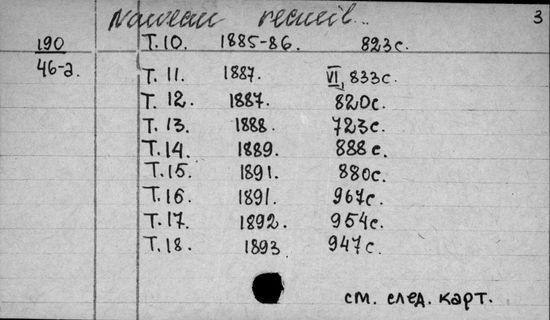 Nouveau recueil... 3
190 Т.10. 1885-86. 823с.
46-2. Т.11. 1887. VI, 833с.
Т.12. 1887. 820с.
Т.13. 1888. 723с.
Т.14. 1889. 888с.
Т.15. 1891. 880с.
Т.16. 1891. 967с.
Т.17. 1892. 954с.
Т.18. 1893 947с.
см. след. карт.